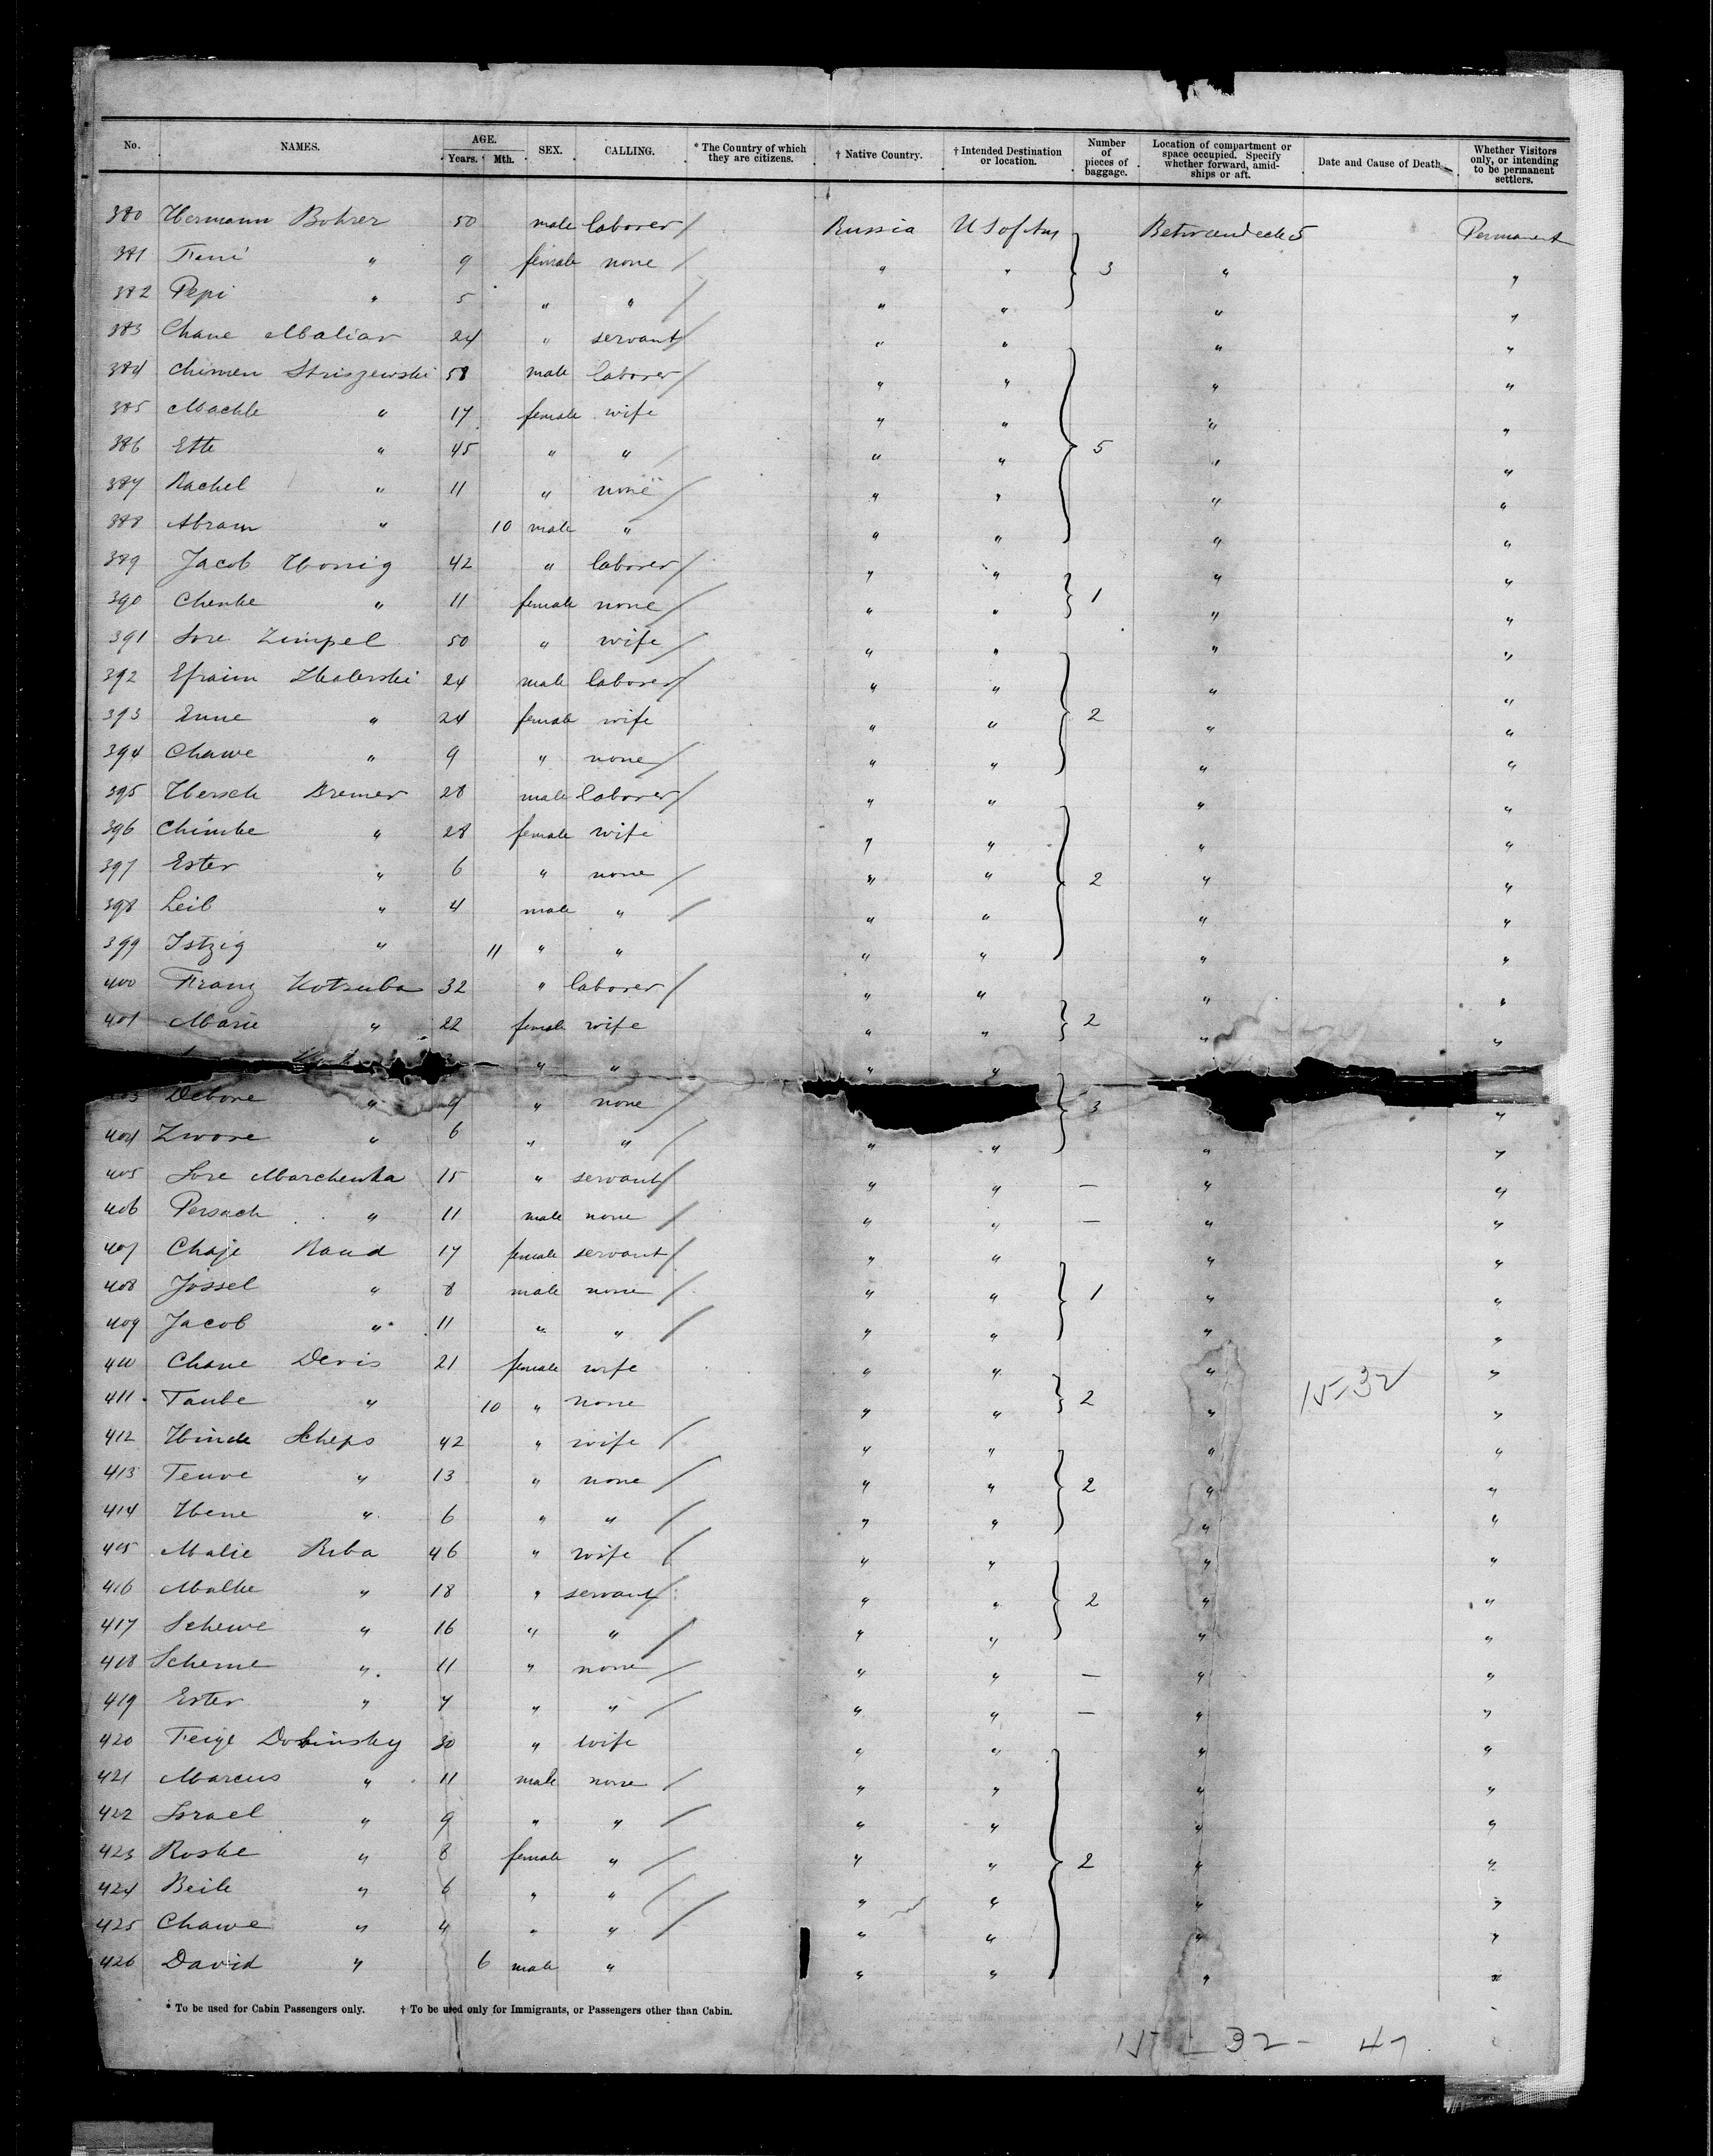 No. NAMES. AGE. Years. Mth. SEX. CALLING. * The Country of which they are citizens. † Native Country. † Intended Destination or location. Number of pieces of baggage. Location of compartment or space occupied. Specify whether forward, amidships or aft. Date and Cause of Death. Whether Visitors only, or intending to be permanent settlers.
380 Hermann Bohrer 50 male laborer / Russia U S of Am Betweendecks Permanent
381 Feni " 9 female none / " " 3 " "
382 Pepi " 5 " " / " " " "
383 Chane Maliar 24 " servant / " " " "
384 Chimen Striszewski 58 male laborer / " " " "
385 Machle " 17 female wife " " " "
386 Ette " 45 " " / " " 5 " "
387 Rachel " 11 " none / " " " "
388 Abram " 10 male " " " " "
389 Jacob Honig 42 " laborer / " " " "
390 Chenke " 11 female none / " " 1 " "
391 Sore Zimpel 50 " wife / " " " "
392 Efraim 24 male laborer / " " " "
393 Enne " 24 female wife " " 2 " "
394 Chawe " 9 " none / " " " "
395 Hersch Bremer 28 male laborer / " " " "
396 Chimke " 28 female wife " " " "
397 Ester " 6 " none / " " 2 " "
398 Leib " 4 male " / " " " "
399 Istzig " 11 " " " " " "
400 Franz Kotzuba 32 " laborer / " " " "
401 Marie " 22 female wife " " 2 " "
" " " "
Debore " 9 " none / 3 "
404 Zwore " 6 " " / " " " "
405 Sore Marchenka 15 " servant / " " — " "
406 Persach " 11 male none / " " — " "
407 Chaje Rand 17 female servant / " " " "
408 Jossel " 8 male none / " " 1 " "
409 Jacob " 11 " " / " " " "
410 Chane Devis 21 female wife " " " "
411 Taube " 10 " none " " 2 " 15-32 "
412 Hinde Scheps 42 " wife / " " " "
413 Teuve " 13 " none / " " 2 " "
414 Hene " 6 " " / " " " "
415 Malie Riba 46 " wife / " " " "
416 Malke " 18 " servant / " " 2 " "
417 Schewe " 16 " " / " " " "
418 Scheme " 11 " none / " " — " "
419 Ester " 7 " " / " " — " "
420 Feige Dobinsky 30 " wife " " " "
421 Marcus " 11 male none / " " " "
422 Israel " 9 " " / " " " "
423 Roske " 8 female " / " " 2 " "
424 Beile " 6 " " / " " " "
425 Chawe " 4 " " / " " " "
426 David " 6 male " " " " "
* To be used for Cabin Passengers only. † To be used only for Immigrants, or Passengers other than Cabin.
15 - 32 - 47